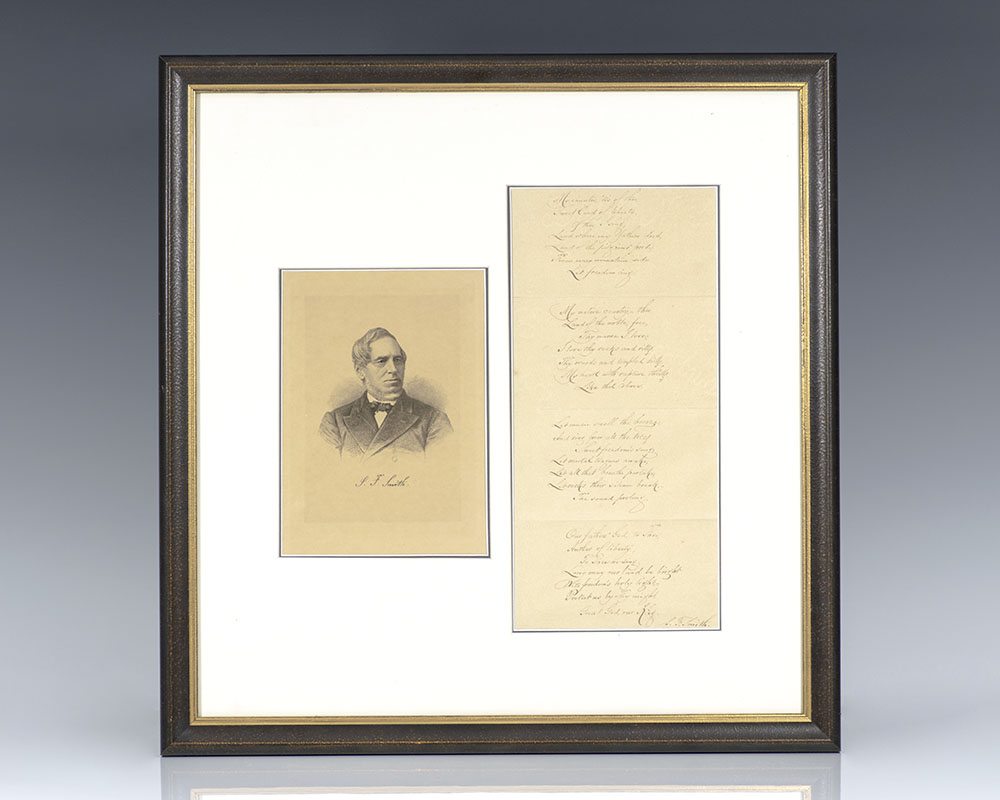 S. F. Smith.
My country 'tis of thee
Sweet land of liberty
Of thee I sing
Land where my fathers died
Land of the pilgrims' pride
From every mountain side
Let freedom ring.
My native country, thee
Land of the noble, free,
Thy name I love;
I love thy rocks and rills
Thy woods and templed hills;
My heart with rapture thrills
Like that above.
Let music swell the breeze,
And ring from all the trees
Sweet freedom's song;
Let mortal tongues awake,
Let all that breathe partake,
Let rocks their silence break,
The sound prolong.
Our fathers' God, to Thee,
Author of liberty,
To Thee we sing
Long may our land be bright
With freedom's holy light,
Protect us by thy might
Great God, our King.
S. F. Smith.